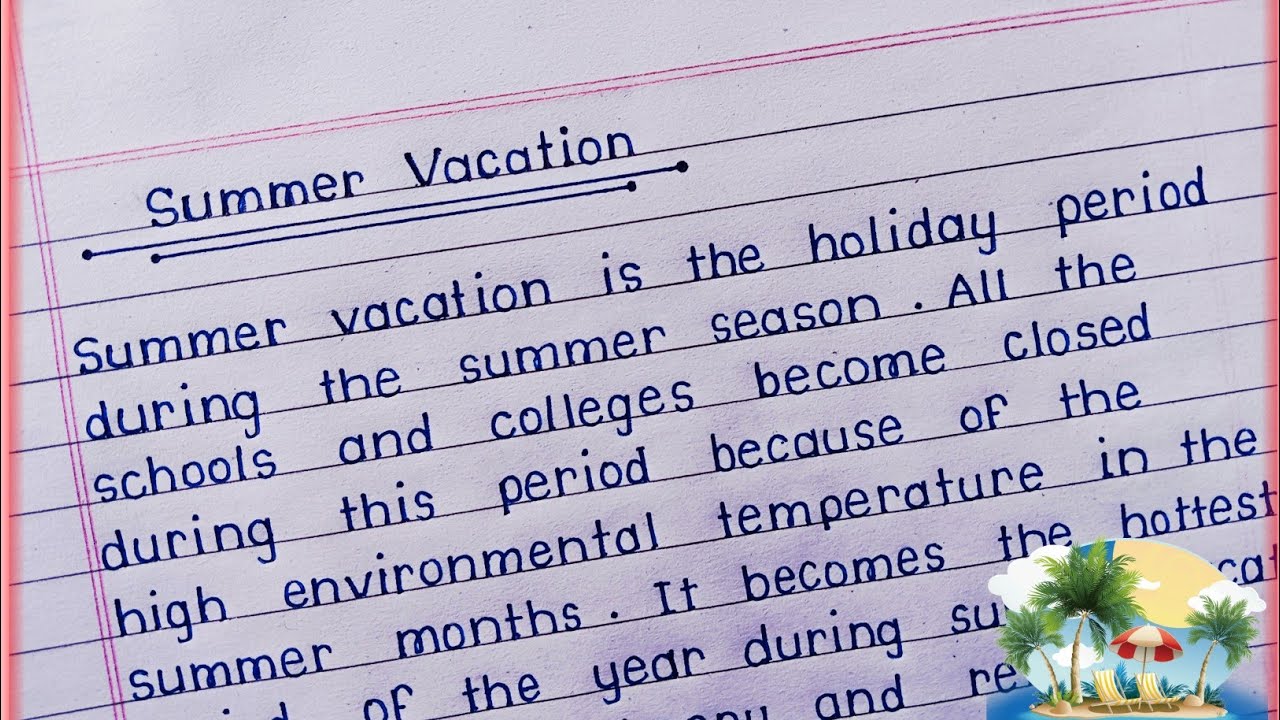 Summer Vacation
Summer vacation is the holiday period
during the summer season. All the
schools and colleges become closed
during this period because of the
high environmental temperature in the
summer months. It becomes the hottest
of the year during
and